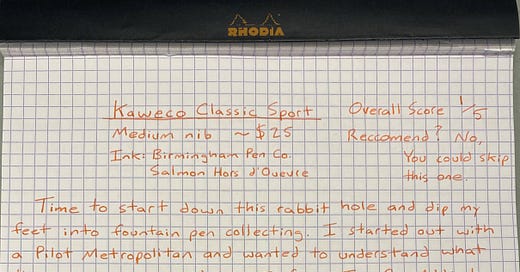 RHODIA
Kaweco Classic Sport
Overall Score 1/5
Medium nib ~ $25
Reccomend? No,
Ink: Birmingham Pen Co.
You could skip
Salmon Hors d'Ouevre
this one.
Time to start down this rabbit hole and dip my
feet into fountain pen collecting. I started out with
a Pilot Metropolitan and wanted to understand what